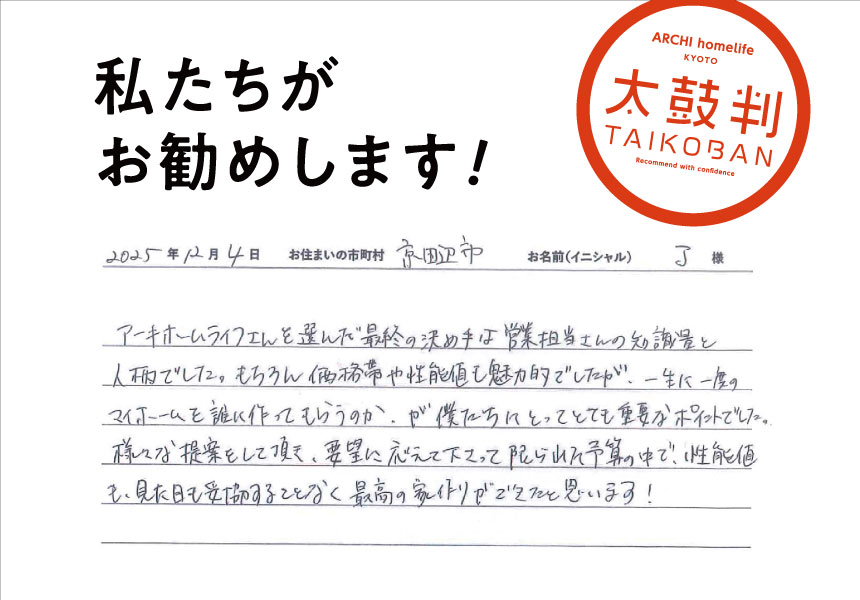 私たちが
お勧めします!
ARCHI homelife
KYOTO
太鼓判
TAIKOBAN
Recommend with confidence
2025年12月4日 お住まいの市町村 京田辺市 お名前(イニシャル) J 様
アーキホームライフさんを選んだ最終の決め手は営業担当さんの知識量と
人柄でした。もちろん価格帯や性能値も魅力的でしたが、一生に一度の
マイホームを誰に作ってもらうのか、が僕たちにとってとても重要なポイントでした。
様々な提案をして頂き、要望に応えて下さって限られた予算の中で、性能値
も、見た目も妥協することなく最高の家作りができたと思います!